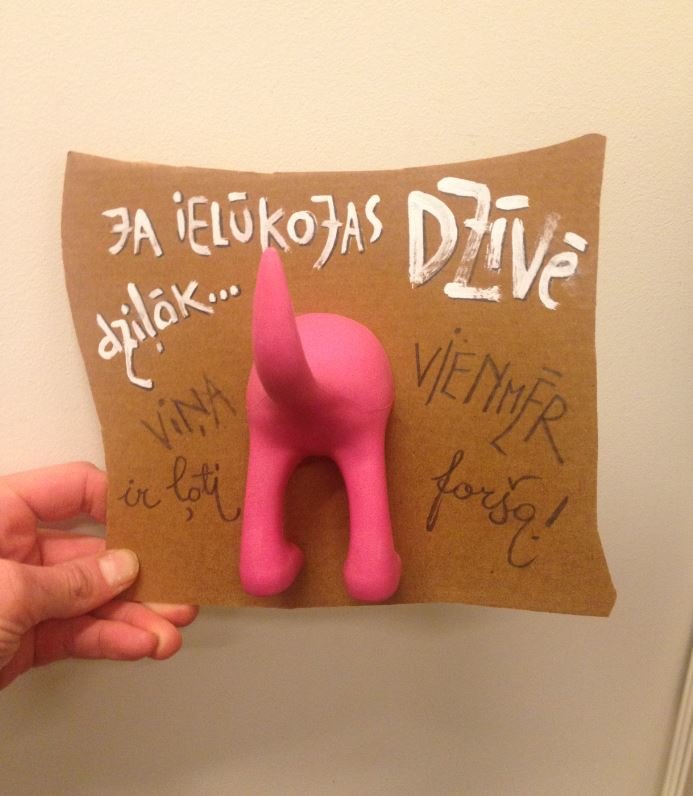 JA IELŪKOJAS DZĪVĒ
dziļāk...
VIŅA VIENMĒR
ir ļoti forša!